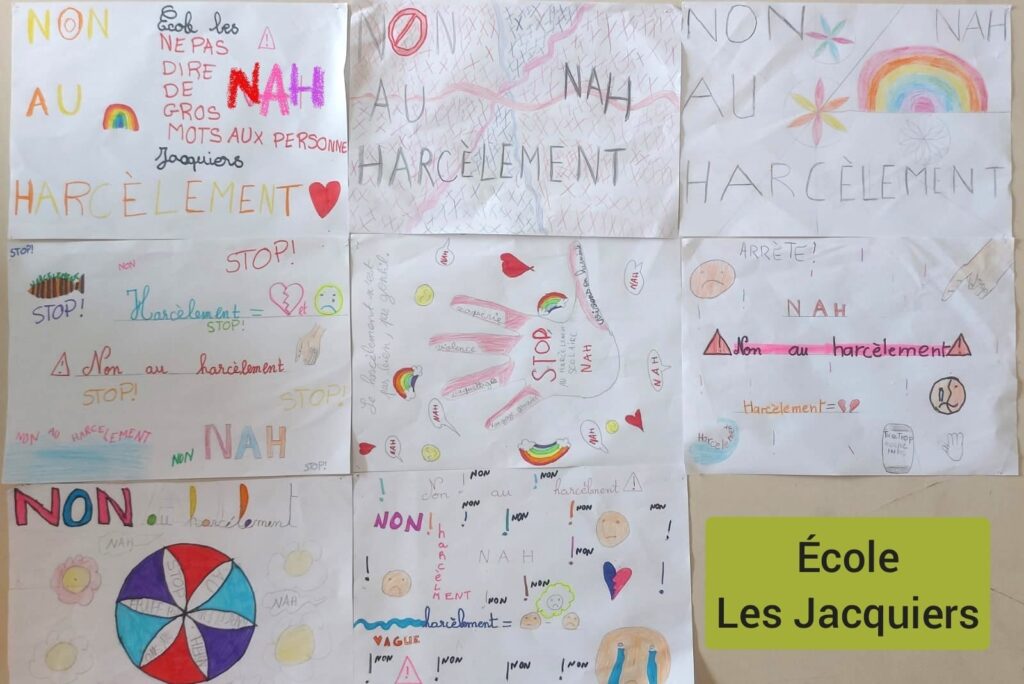 NON
AU
HARCÈLEMENT
École les
NE PAS
DIRE
DE
GROS
MOTS AUX PERSONNE
Jacquiers
NAH
NON
AU
HARCÈLEMENT
NAH
NON
AU
HARCÈLEMENT
NAH
STOP!
NON
STOP!
STOP!
Harcèlement =
et
STOP!
Non au harcèlement
STOP!
STOP!
NON AU HARCELEMENT
NON
NAH
STOP!
Le harcèlement
violence
STOP
AU HARCÈLEMENT
SCOLAIRE
NAH
NAH
NAH
NAH
NAH
NAH
NAH
NAH
ARRÈTE!
NAH
Non au harcèlement
Harcèlement =
NON au harcèlement
NAH
STOP
NAH
Non au harcèlment
NON
NON
NON
NON
NON
NON
NON!
harcÈlMENT
NAH
NON
NON
NON
harcèlement =
VAGUE
NON
NON
NON
NON
École
Les Jacquiers